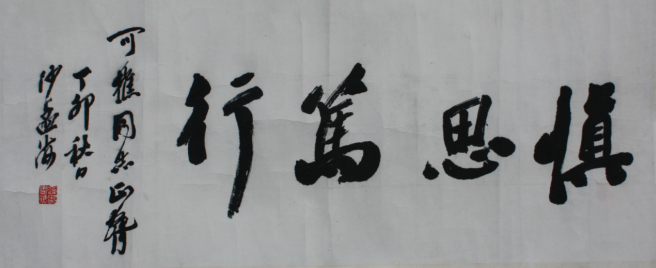 慎思篤行
可権同志正腕
丁卯秋日
沙孟海